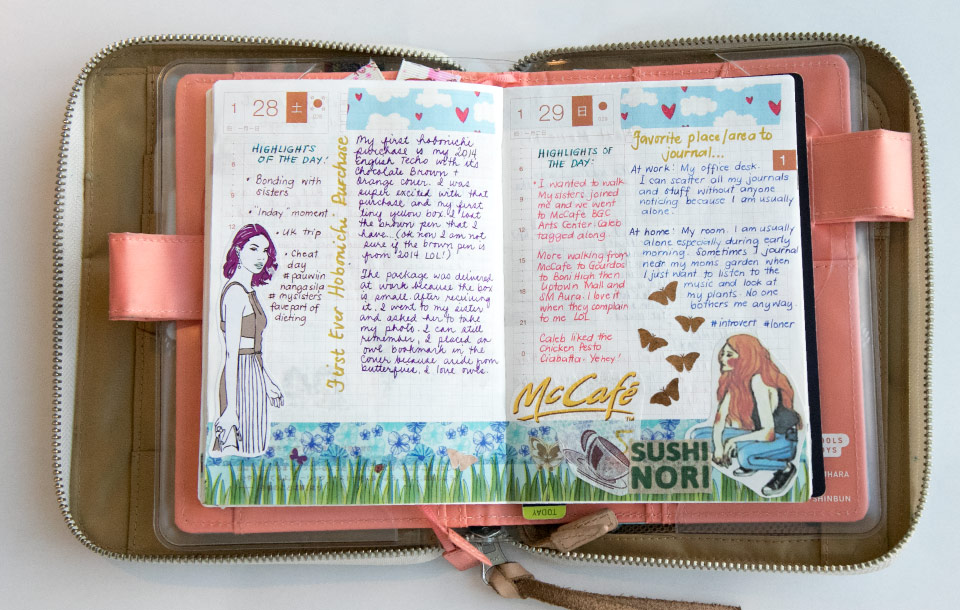 1 28 土
HIGHLIGHTS
OF THE DAY!
• Bonding with
sisters
• "Inday" moment
• UK trip
• Cheat
day
# pauwiin
nangasila
# mysisters
fave part of
dieting
First Ever Hobonichi Purchase
My first hobonichi
purchase is my 2014
English Techo with its
chocolate Brown +
Orange cover. I was
super excited with that
purchase and my first
tiny yellow box. I lost
the brown pen that I
have. (OK now I am not
sure if the brown pen is
from 2014 LOL!)
The package was delivered
at work because the box
is small. After receiving
it, I went to my sister
and asked her to take
my photo. I can still
remember, I placed an
owl bookmark in the
cover because aside from
butterflies, I love owls.
1 29 日
HIGHLIGHTS
OF THE
DAY!
• I wanted to walk.
My sisters joined
me and we went
to McCafe BGC
Arts Center. Caleb
tagged along.
More walking from
McCafe to Gourdos
to Boni High then
Uptown Mall and
SM Aura. I love it
when they complain
to me LOL
Caleb liked the
Chicken Pesto
Ciabatta. Yehey!
favorite place/area to
journal...
1
At work: My office desk.
I can scatter all my journals
and stuff without anyone
noticing because I am usually
alone.
At home: My room. I am usually
alone especially during early
morning. Sometimes I journal
near my moms garden when
I just want to listen to the
music and look at
my plants. No one
bothers me anyway.
#introvert #loner
McCafé
TM
SUSHI
NORI
TODAY
OOLS
OYS
IHARA
SHINBUN